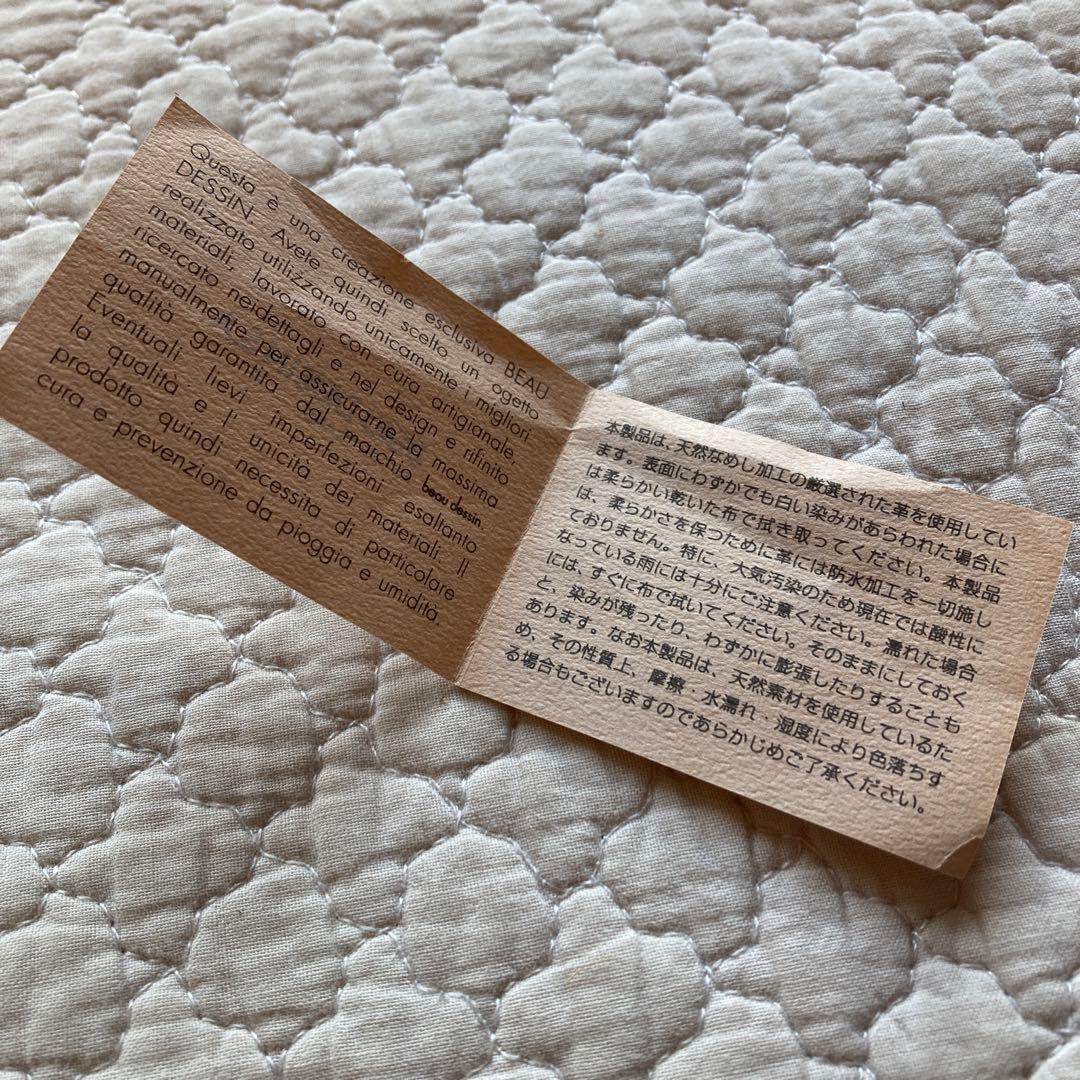 Questa è una creazione esclusiva BEAU
DESSIN. Avete quindi scelto un ogetto
realizzato utilizzando unicamente i migliori
materiali, lavorato con cura artigianale,
ricercato neidettagli e nel design e rifinito
manualmente per assicurarne la massima
qualità garantita dal marchio beau dessin.
Eventuali lievi imperfezioni esaltanto
la qualità e l' unicità dei materiali. Il
prodotto quindi necessita di particolare
cura e prevenzione da pioggia e umidità.
本製品は、天然なめし加工の厳選された革を使用してい
ます。表面にわずかでも白い染みがあらわれた場合に
は柔らかい乾いた布で拭き取ってください。本製品
は、柔らかさを保つために革には防水加工を一切施し
ておりません。特に、大気汚染のため現在では酸性に
なっている雨には十分にご注意ください。濡れた場合
には、すぐに布で拭いてください。そのままにしておく
と、染みが残ったり、わずかに膨張したりすることも
あります。なお本製品は、天然素材を使用しているた
め、その性質上、摩擦・水濡れ・湿度により色落ちす
る場合もございますのであらかじめご了承ください。